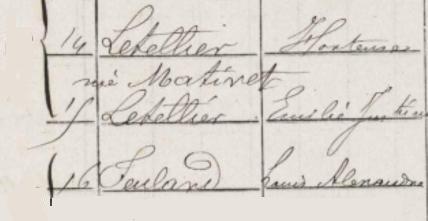 14 Letellier Hortense
né Mativet
15 Letellier Emilie Justine
16 Feuland Louis Alexandre